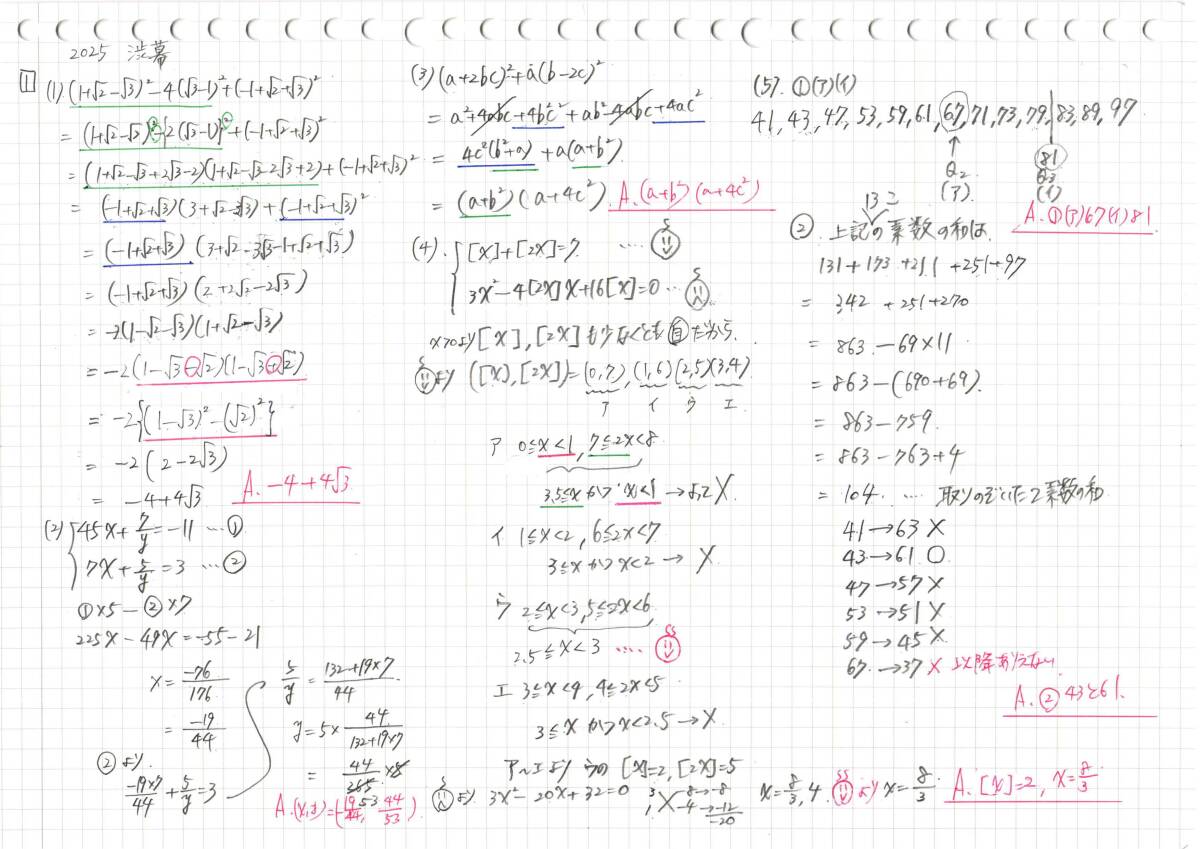 2025 渋幕
1
(1) (1+√2-√3)²-4(√3-1)²+(-1+√2+√3)²
= {(1+√2-√3)²-{2(√3-1)}²+(-1+√2+√3)²
= (1+√2-√3+2√3-2)(1+√2-√3-2√3+2)+(-1+√2+√3)²
= (-1+√2+√3)(3+√2-3√3)+(-1+√2+√3)²
= (-1+√2+√3)(3+√2-3√3-1+√2+√3)
= (-1+√2+√3)(2+2√2-2√3)
= -2(1-√2-√3)(1+√2-√3)
= -2(1-√3-√2)(1-√3+√2)
= -2{(1-√3)²-(√2)²}
= -2(2-2√3)
= -4+4√3 A. -4+4√3
(2) {45x+7/y=-11 …①
7x+5/y=3 …②
①×5-②×7
225x-49x=-55-21
x=-76/176
=-19/44
②より.
-19×7/44+5/y=3
5/y=(132+19×7)/44
y=5×44/(132+19×7)
=44/265×5
A.(x,y)=(-19/44, 44/53)
53
(3) (a+2bc)²+a(b-2c)²
= a²+4abc+4b²c²+ab²-4abc+4ac²
= 4c²(b²+a)+a(a+b²)
= (a+b²)(a+4c²) A.(a+b²)(a+4c²)
(4). {[x]+[2x]=7 ……
3x²-4[2x]x+16[x]=0 …
x>0より[x],[2x]も少なくとも だから.
より ([x],[2x])=(0,7),(1,6)(2,5)(3,4)
ア イ ウ エ
ア 0≦x<1, 7≦2x<8
3.5≦xかつx<1 →よってX.
イ 1≦x<2, 6≦2x<7
3≦xかつx<2 → X
ウ 2≦x<3, 5≦2x<6
2.5≦x<3 ……
エ 3≦x<4, 4≦2x<5
3≦xかつx<2.5→X
ア〜エより ウの [x]=2,[2x]=5
より 3x²-20x+32=0
3 -8→-8
1 -4→-12
-20
x=8/3,4. より x=8/3 A.[x]=2, x=8/3
(5). ①(ア)(イ)
41,43,47,53,59,61,67,71,73,79,83,89,97
↑
Q₂
(ア).
81
Q₃
(イ)
A.①(ア)67(イ)81
13コ
② 上記の素数の和は.
131+173+211+251+97
= 342+251+270
= 863.-69×11
= 863-(690+69).
= 863-759.
= 863-763+4
= 104. …… 取りのぞいた2素数の和
41→63 X
43→61 O
47→57 X
53→51 X
59→45 X
67→37 X 以降ありえない
A.② 43と61.